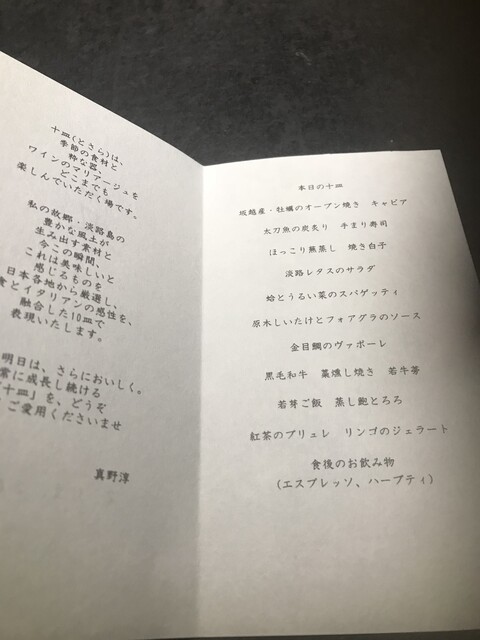 十皿(とさら)は、
季節の食材と
粋な器、
ワインのマリアージュを
どこまでも
楽しんでいただく場です。
私の故郷・淡路島の
豊かな風土が
生み出す素材と
今この瞬間、
これは美味しいと
感じるものを
日本各地から厳選し、
食とイタリアンの感性を、
融合した10皿で
表現いたします。
明日は、さらにおいしく。
常に成長し続ける
「十皿」を、どうぞ
ご愛用くださいませ
真野淳
本日の十皿
坂越産・牡蠣のオーブン焼き キャビア
太刀魚の炭炙り 手まり寿司
ほっこり蕪蒸し 焼き白子
淡路レタスのサラダ
蛤とうるい菜のスパゲッティ
原木しいたけとフォアグラのソース
金目鯛のヴァポーレ
黒毛和牛 藁燻し焼き 若牛蒡
若芽ご飯 蒸し鮑とろろ
紅茶のブリュレ リンゴのジェラート
食後のお飲み物
(エスプレッソ、ハーブティ)